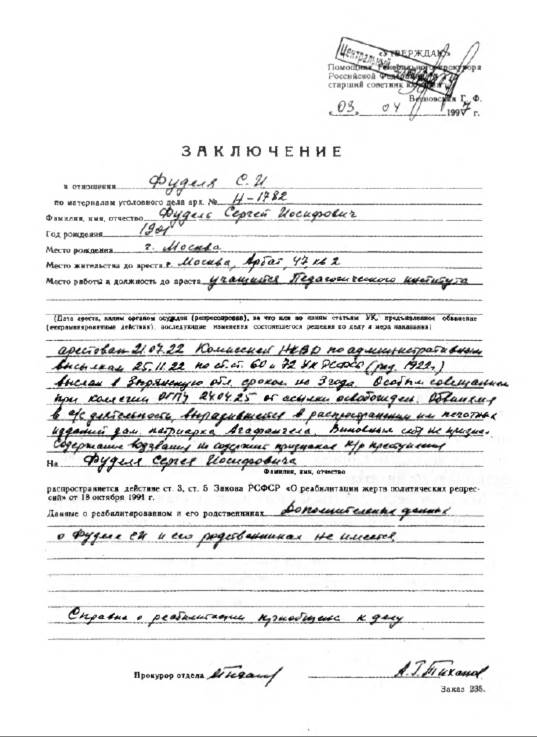 Центральный
«УТВЕРЖДАЮ»
Помощник Генерального прокурора
Российской Федерации
старший советник юстиции
Г. Ф.
«03» 04 1997 г.
ЗАКЛЮЧЕНИЕ
в отношении Фуделя С. И
по материалам уголовного дела арх. № Н-1782
Фамилия, имя, отчество Фудель Сергей Иосифович
Год рождения 1901
Место рождения г. Москва
Место жительства до ареста г. Москва, Арбат, 47 кв 2
Место работы и должность до ареста учащийся Педагогического института
(Дата ареста, каким органом осужден (репрессирован), за что или по каким статьям УК, предъявленное обвинение
(инкриминированные действия), последующие изменения состоявшегося решения по делу и мера наказания)
арестован 21.07.22 Комиссией НКВД по административным
высылкам 25.11.22 по ст.ст. 60 и 72 УК РСФСР (ред. 1922г.)
выслан в Зырянскую обл. сроком на 3 года. Особым совещанием
при коллегии ОГПУ 24.04.25 от ссылки освобожден. Обвинялся
в а/с деятельности, выразившейся в распространении им печатных
изданий зам. патриарха Агафангела. Виновным себя не признал.
Содержание воззвания не содержит признаков к/р преступления
На Фуделя Сергея Иосифовича
Фамилия, имя, отчество
распространяется действие ст. 3, ст. 5 Закона РСФСР «О реабилитации жертв политических репрес-
сий» от 18 октября 1991 г.
Данные о реабилитированном и его родственниках Дополнительных данных
о Фуделе СИ и его родственниках не имеется.
Справка о реабилитации приобщена к делу
Прокурор отдела А. Г. Тиханов
Заказ 235.